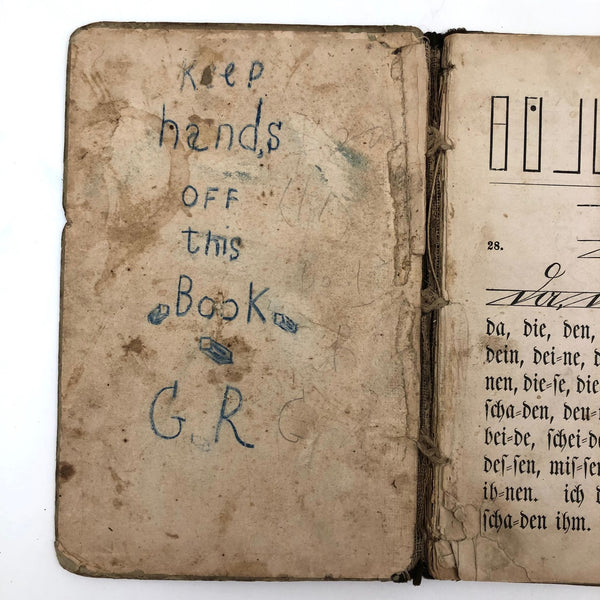 Keep
hands
OFF
this
Book
G.R
28.
da, die, den,
dein, dei⸗ne, d
nen, die⸗ſe, die
ſcha⸗den, deu⸗
bei⸗de, ſchei⸗d
deſ⸗ſen, miſ⸗ſe
ih⸗nen. ich d
ſcha⸗den ihm.